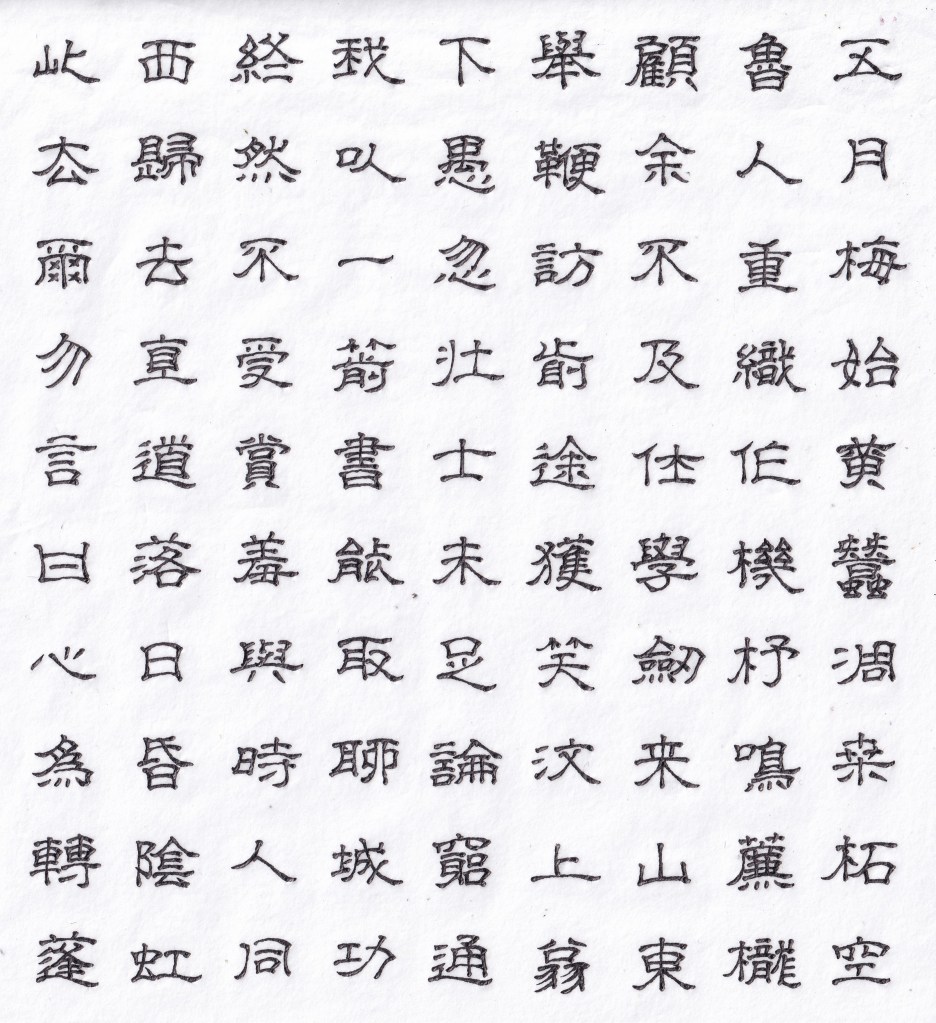 五月梅始黃蠶凋桒柘空
魯人重織作機杼鳴簾櫳
顧余不及仕學劒来山東
舉鞭訪前途獲笑汶上翁
下愚忽壯士未足論窮通
我以一箭書能取聊城功
終然不受賞羞與時人同
西歸去直道落日昏陰虹
此去爾勿言甘心為轉蓬